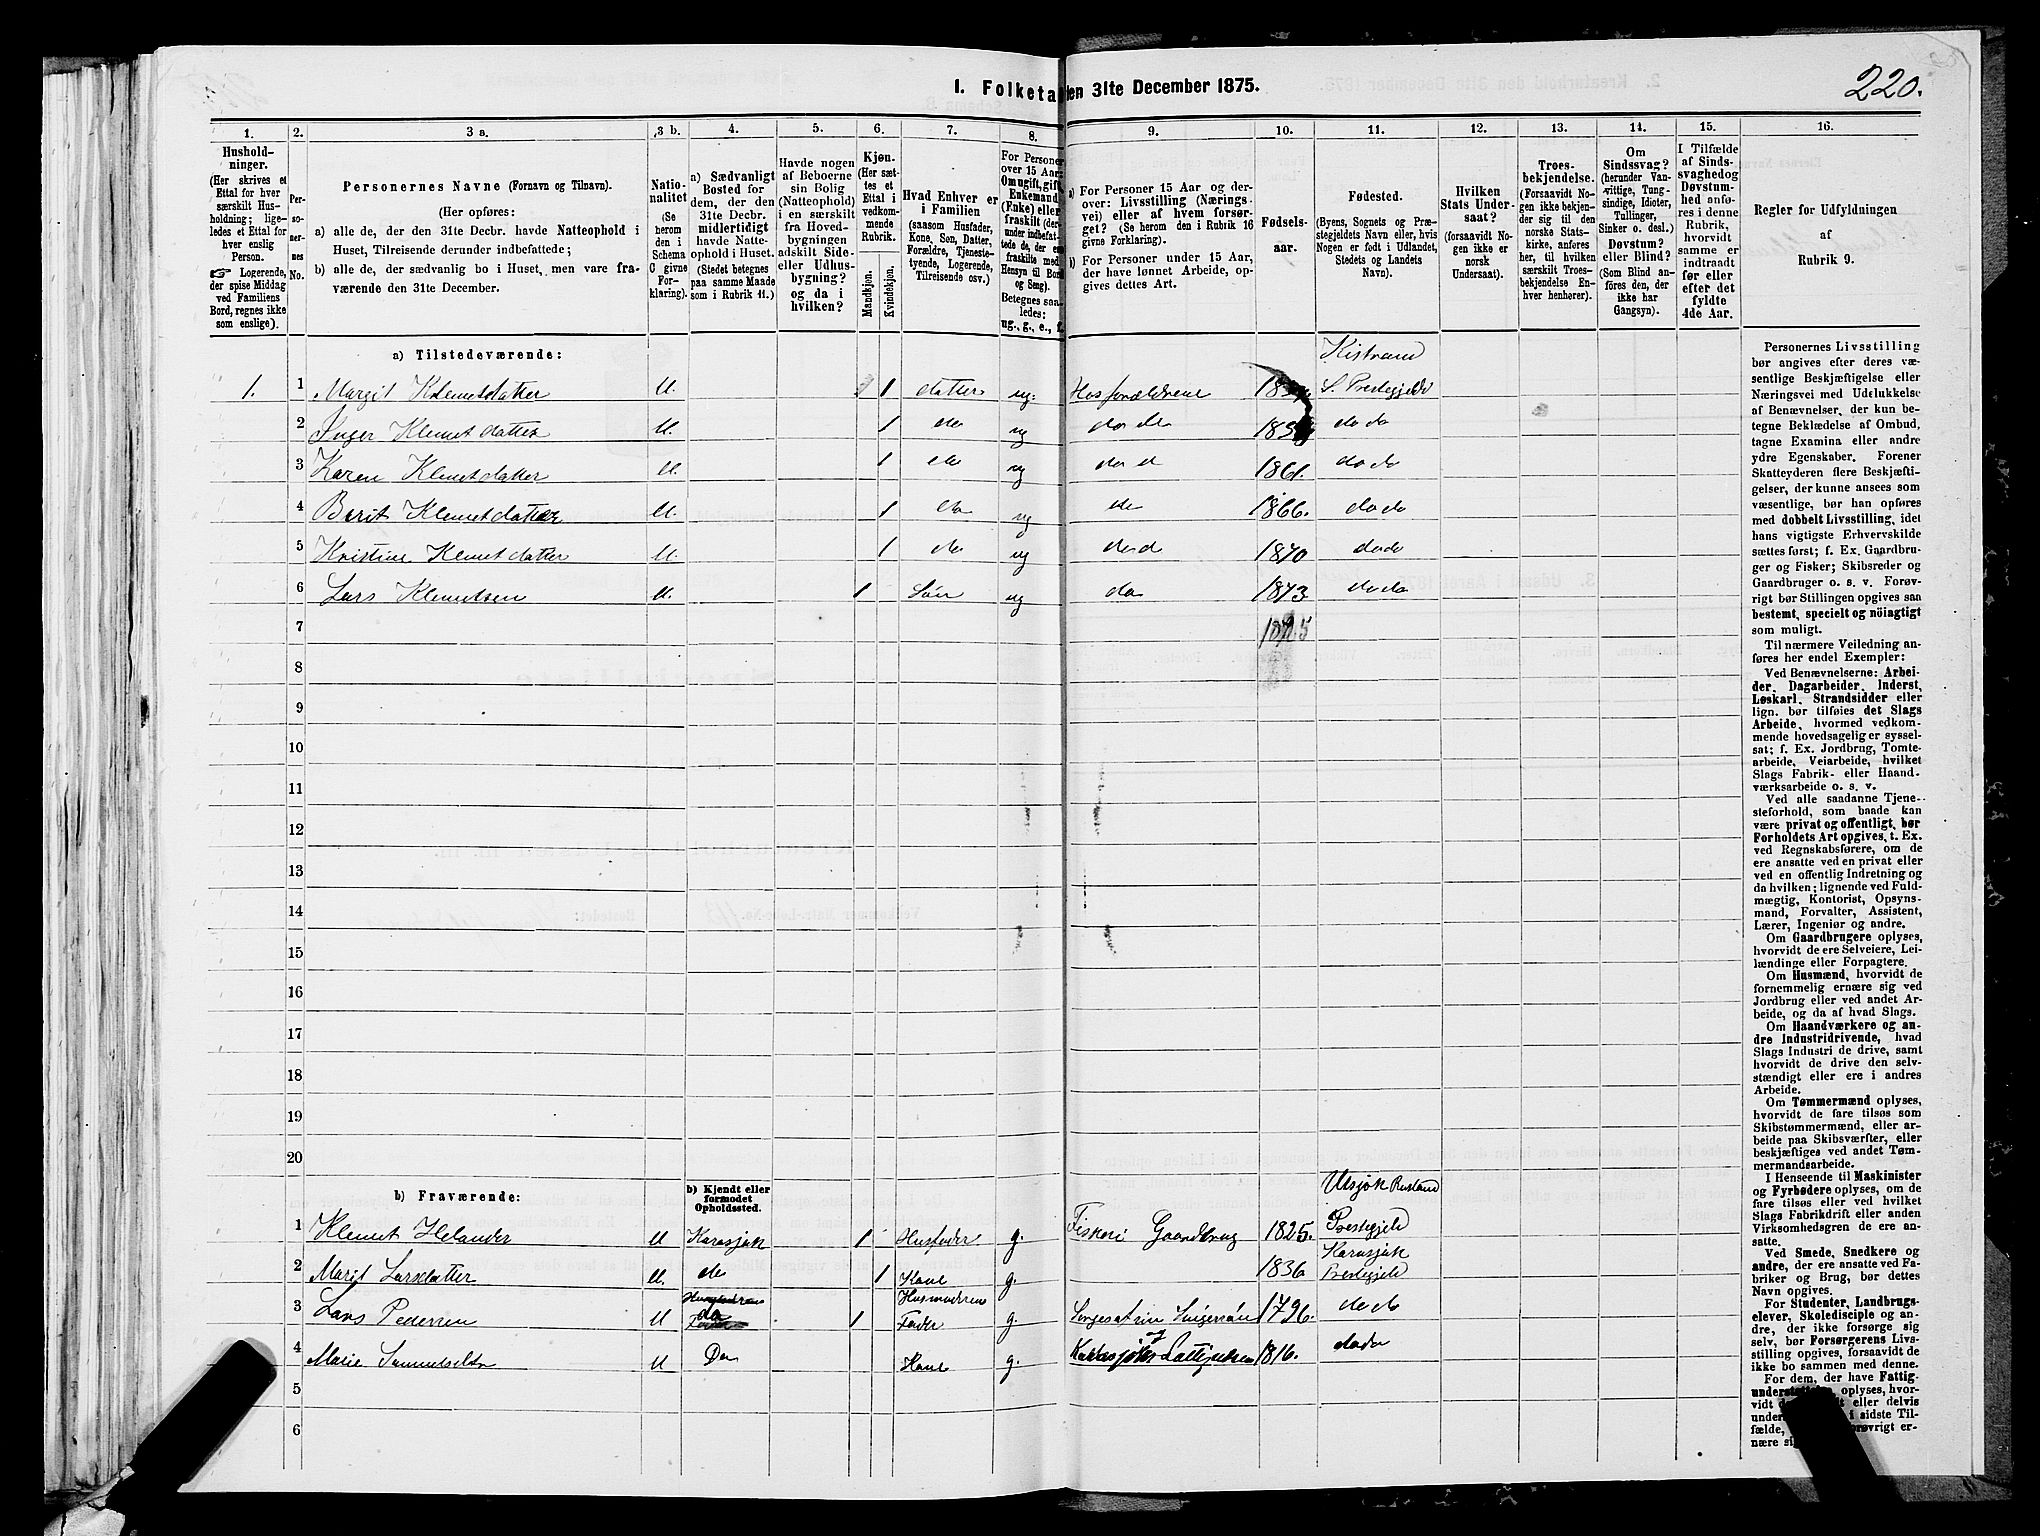 I. Folketa
den 31te December 1875.
220.
1.
2.
3 a.
3 b.
4.
5.
6.
7.
8.
9.
10.
11.
12.
13.
14.
15.
16.
Hushold-
ninger.
(Her skrives et
Ettal for hver
særskilt Hus-
holdning; lige-
ledes et Ettal for
hver enslig
Person.
☞ Logerende,
der spise Middag
ved Familiens
Bord, regnes ikke
som enslige).
Per-
so-
ner-
nes
No.
Personernes Navne (Fornavn og Tilnavn).
(Her opføres:
a) alle de, der den 31te Decbr. havde Natteophold i
Huset, Tilreisende derunder indbefattede;
b) alle de, der sædvanlig bo i Huset, men vare fra-
værende den 31te December.
Natio-
nalitet
(Se
herom
den i
Schema
C givne
For-
klaring).
a) Sædvanligt
Bosted for
dem, der den
31te Decbr.
midlertidigt
havde Natte-
ophold i Huset.
(Stedet betegnes
paa samme Maade
som i Rubrik 11.)
Havde nogen
af Beboerne
sin Bolig
(Natteophold)
i en særskilt
fra Hoved-
bygningen
adskilt Side-
eller Udhus-
bygning?
og da i
hvilken?
Kjøn.
(Her sæt-
tes et
Ettal i
vedkom-
mende
Rubrik.
Mandkjøn.
Kvindekjøn.
Hvad Enhver er
i Familien
(saasom Husfader,
Kone, Søn, Datter,
Forældre, Tjeneste-
tyende, Logerende,
Tilreisende osv.)
For Personer
over 15 Aar:
Om ugift, gift,
Enkemand
(Enke) eller
fraskilt (der-
under indbefat-
tede de, der ere
fraskilte med
Hensyn til Bord
og Seng).
Betegnes saa-
ledes:
ug., g., e., f.
a) For Personer 15 Aar og der-
over: Livsstilling (Nærings-
vei) eller af hvem forsør-
get? (Se herom den i Rubrik 16
givne Forklaring).
b) For Personer under 15 Aar,
der have lønnet Arbeide, op-
gives dettes Art.
Fødsels-
aar.
Fødested.
(Byens, Sognets og Præ-
stegjeldets Navn eller, hvis
Nogen er født i Udlandet,
Stedets og Landets
Navn).
Hvilken
Stats Under-
saat?
(forsaavidt No-
gen ikke er
norsk
Undersaat).
Troes-
bekjendelse.
(Forsaavidt No-
gen ikke bekjen-
der sig til den
norske Stats-
kirke, anføres
her, til hvilken
særskilt Troes-
bekjendelse En-
hver henhører).
Om
Sindssvag?
(herunder Van-
vittige, Tung-
sindige, Idioter,
Tullinger,
Sinker o. desl.)
Døvstum?
eller Blind?
(Som Blind an-
føres den, der
ikke har
Gangsyn).
I Tilfælde
af Sinds-
svaghed og
Døvstum-
hed anfø-
res i denne
Rubrik,
hvorvidt
samme er
indtraadt
før eller
efter det
fyldte
4de Aar.
Regler for Udfyldningen
af
Rubrik 9.
a) Tilstedeværende:
Kistrand
1. 1 Margit Klemetsdatter U. 1 datter ug. Hos forældrene S. Prestegjeld
2 Inger Klemetdatter U. 1 do ug do do do do
3 Karen Klemetdatter U. 1 do ug do d 1861. do do
4 Berit Klemetdatter U. 1 do ug do 1866. do do
5 Kristine Klemetdatter U. 1 do ug do d 1870 do do
6 Lars Klemetsen U. 1 Søn ug do 1873 do do
7 1875
8
9
10
11
12
13
14
15
16
17
18
19
20
b) Fraværende:
b) Kjendt eller
formodet
Opholdssted.
Utsjok Rusland
1 Klemet Helander U Karasjok 1 Husfader g. Fiskeri Gaardbrug 1825. Prestegjeld
Karasjok
2 Marit Larsdatter U. do 1 Kone g. 1836 Prestegjeld
Husmoderens
3 Lars Pedersen U do 1 Fader g. 1796. do do
4 Marie Samuelsdtr U Do Kone g. 1816. do do
5
6
Personernes Livsstilling
bør angives efter deres væ-
sentlige Beskjæftigelse eller
Næringsvei med Udelukkelse
af Benævnelser, der kun be-
tegne Beklædelse af Ombud,
tagne Examina eller andre
ydre Egenskaber. Forener
Skatteyderen flere Beskjæfti-
gelser, der kunne ansees som
væsentlige, bør han opføres
med dobbelt Livsstilling, idet
hans vigtigste Erhvervskilde
sættes først; f. Ex. Gaardbru-
ger og Fisker; Skibsreder og
Gaardbruger o. s. v. Forøv-
rigt bør Stillingen opgives saa
bestemt, specielt og nöiagtigt
som muligt.
Til nærmere Veiledning an-
føres her endel Exempler:
Ved Benævnelserne: Arbei-
der, Dagarbeider, Inderst,
Løskarl, Strandsidder eller
lign. bør tilføies det Slags
Arbeide, hvormed vedkom-
mende hovedsagelig er syssel-
sat; f. Ex. Jordbrug, Tomte-
arbeide, Veiarbeide, hvilket
Slags Fabrik- eller Haand-
værksarbeide o. s. v.
Ved alle saadanne Tjene-
steforhold, som baade kan
være privat og offentligt, bør
Forholdets Art opgives, t. Ex.
ved Regnskabsførere, om de
ere ansatte ved en privat eller
ved en offentlig Indretning og
da hvilken; lignende ved Fuld-
mægtig, Kontorist, Opsyns-
mand, Forvalter, Assistent,
Lærer, Ingeniør og andre.
Om Gaardbrugere oplyses,
hvorvidt de ere Selveiere, Lei-
lændinge eller Forpagtere.
Om Husmænd, hvorvidt de
fornemmelig ernære sig ved
Jordbrug eller ved andet Ar-
beide, og da af hvad Slags.
Om Haandværkere og an-
dre Industridrivende, hvad
Slags Industri de drive, samt
hvorvidt de drive den selv-
stændigt eller ere i andres
Arbeide.
Om Tømmermænd oplyses,
hvorvidt de fare tilsøs som
Skibstømmermænd, eller ar-
beide paa Skibsværfter, eller
beskjæftiges ved andet Tøm-
mermandsarbeide.
I Henseende til Maskinister
og Fyrbødere oplyses, om de
fare tilsøs eller ved hvilket
Slags Fabrikdrift eller anden
Virksomhedsgren de ere an-
satte.
Ved Smede, Snedkere og
andre, der ere ansatte ved Fa-
briker og Brug, bør dettes
Navn opgives.
For Studenter, Landbrugs-
elever, Skoledisciple og an-
dre, der ikke forsørge sig
selv, bør Forsørgerens Livs-
stilling opgives, forsaavidt de
ikke bo sammen med denne.
For dem, der have Fattig-
oplyses, hvor-
vidt eller delvis
i sidste Til-
fælde,